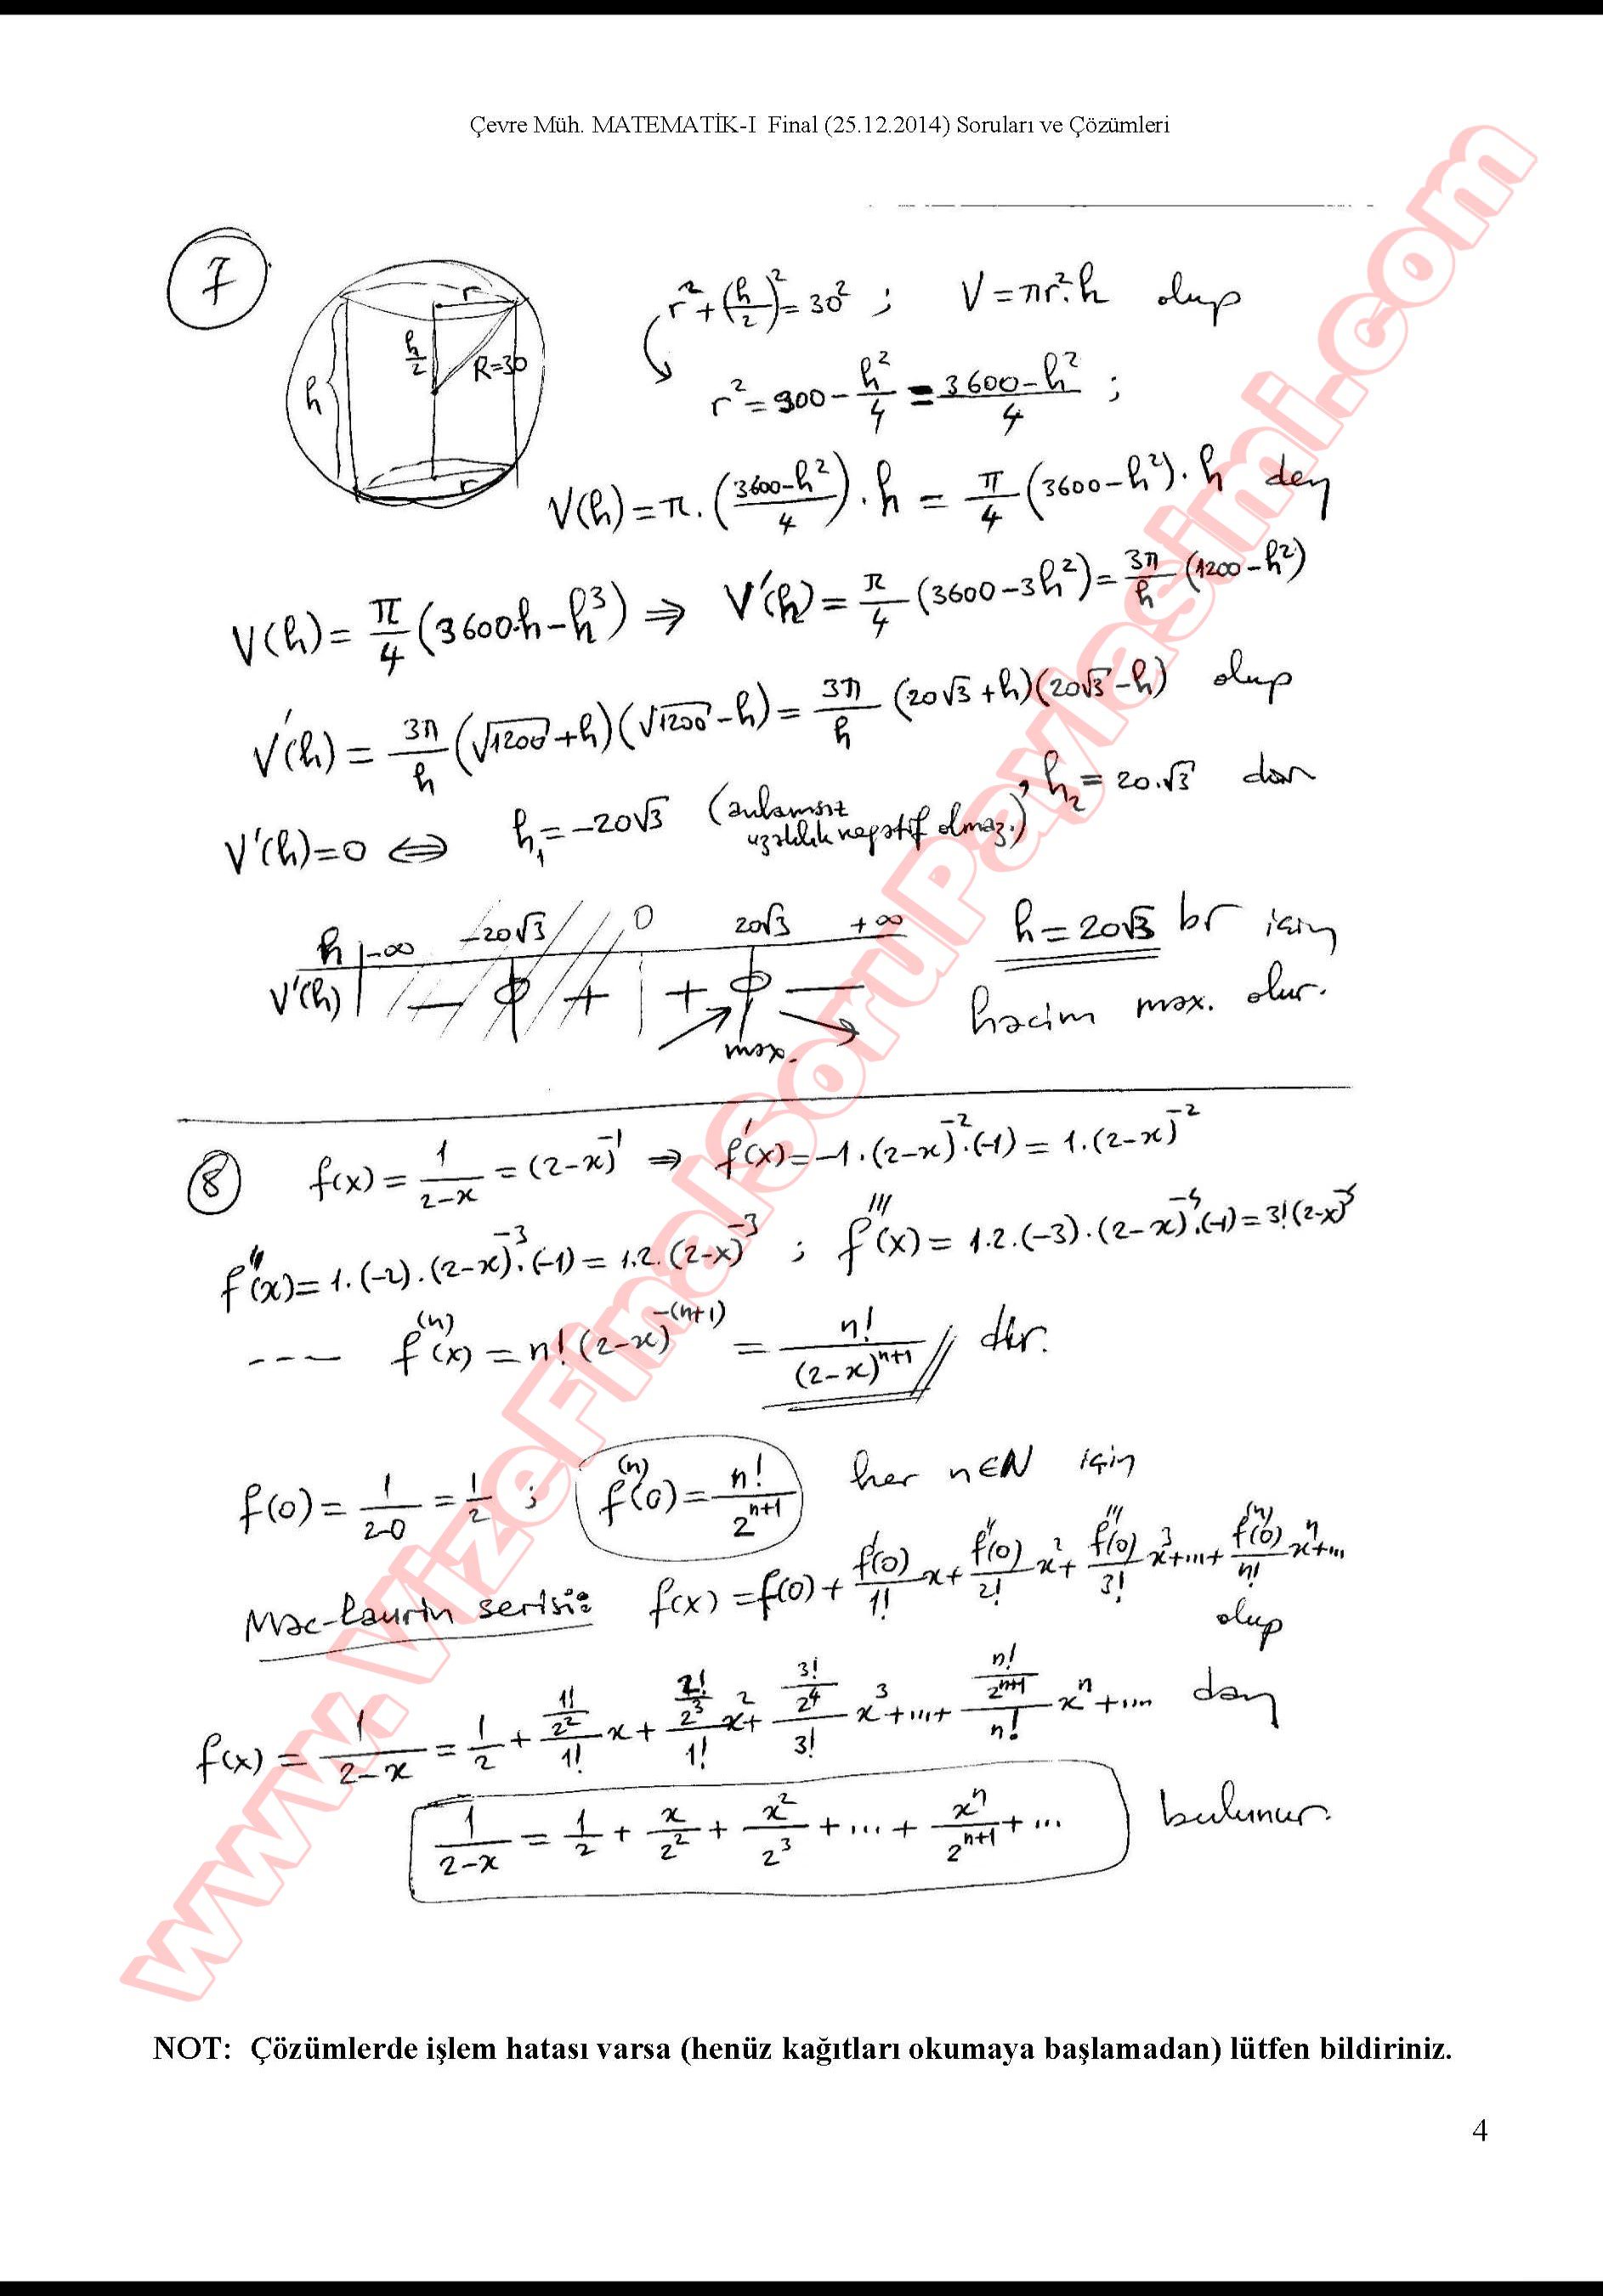 Çevre Müh. MATEMATİK-I Final (25.12.2014) Soruları ve Çözümleri
7
r
h/2
R=30
h
r
r²+(h/2)²=30² ; V=πr².h olup
r²=900-h²/4=(3600-h²)/4 ;
V(h)=π.((3600-h²)/4).h = π/4 (3600-h²).h den
V(h)=π/4 (3600.h-h³) ⇒ V'(h)=π/4 (3600-3h²)=3π/h (1200-h²)
V'(h)=3π/h (√1200+h)(√1200-h)=3π/h (20√3+h)(20√3-h) olup
V'(h)=0 ⇔ h₁=-20√3 (anlamsız uzaklık negatif olmaz.), h₂=20.√3 dan
h -∞ -20√3 0 20√3 +∞
V'(h) - 0 + + 0 -
max.
h=20√3 br için
hacim max. olur.
8 f(x)=1/(2-x)=(2-x)⁻¹ ⇒ f'(x)=-1.(2-x)⁻².(-1)=1.(2-x)⁻²
f''(x)=1.(-2).(2-x)⁻³.(-1)=1.2.(2-x)⁻³ ; f'''(x)=1.2.(-3).(2-x)⁻⁴.(-1)=3!(2-x)
---- f⁽ⁿ⁾(x)=n!(2-x)^-(n+1) = n!/(2-x)ⁿ⁺¹ dir.
f(0)=1/(2-0)=1/2 ; f⁽ⁿ⁾(0)=n!/2ⁿ⁺¹ her n∈N için
Mac-Laurin serisi: f(x)=f(0)+f'(0)/1! x+f''(0)/2! x²+f'''(0)/3! x³+...+f⁽ⁿ⁾(0)/n! xⁿ+...
olup
f(x)=1/(2-x)=1/2+(1!/2²)/1! x+(2!/2³)/1! x²+(3!/2⁴)/3! x³+...+(n!/2ⁿ⁺¹)/n! xⁿ+... dan
1/(2-x)=1/2+x/2²+x²/2³+...+xⁿ/2ⁿ⁺¹+... bulunur.
NOT: Çözümlerde işlem hatası varsa (henüz kağıtları okumaya başlamadan) lütfen bildiriniz.
4
www.VizeFinalSoruPaylasimi.com